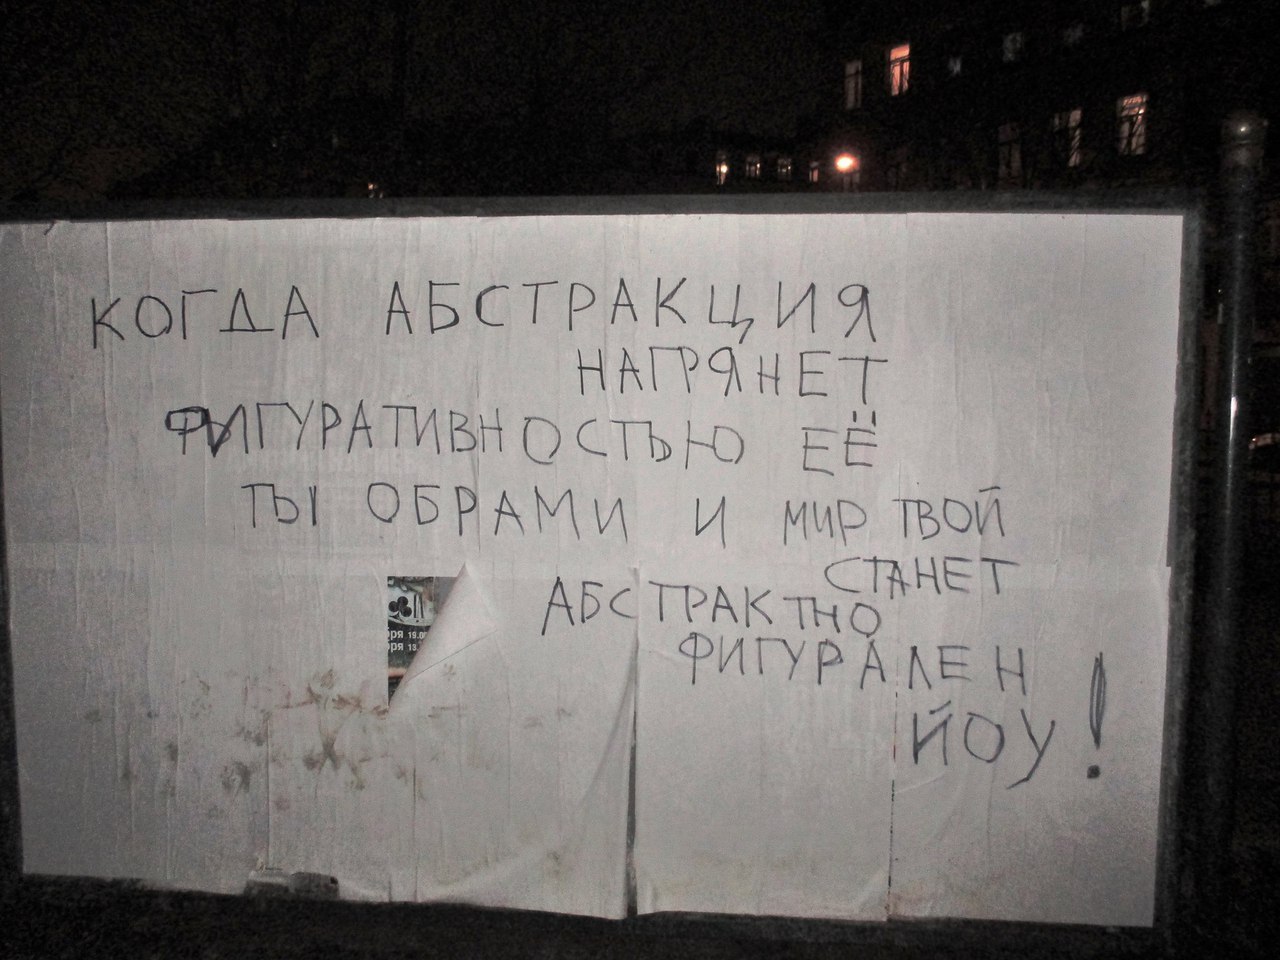 КОГДА АБСТРАКЦИЯ
НАГРЯНЕТ
ФИГУРАТИВНОСТЬЮ ЕЁ
ТЫ ОБРАМИ И МИР ТВОЙ
СТАНЕТ
АБСТРАКТНО
ФИГУРАЛЕН
ЙОУ!
бря 19.00
бря 13.